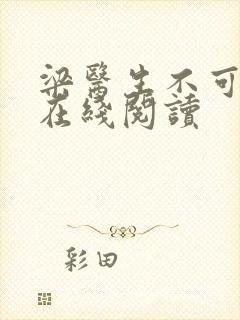 梁醫生不可
在綫閱讀
彩田